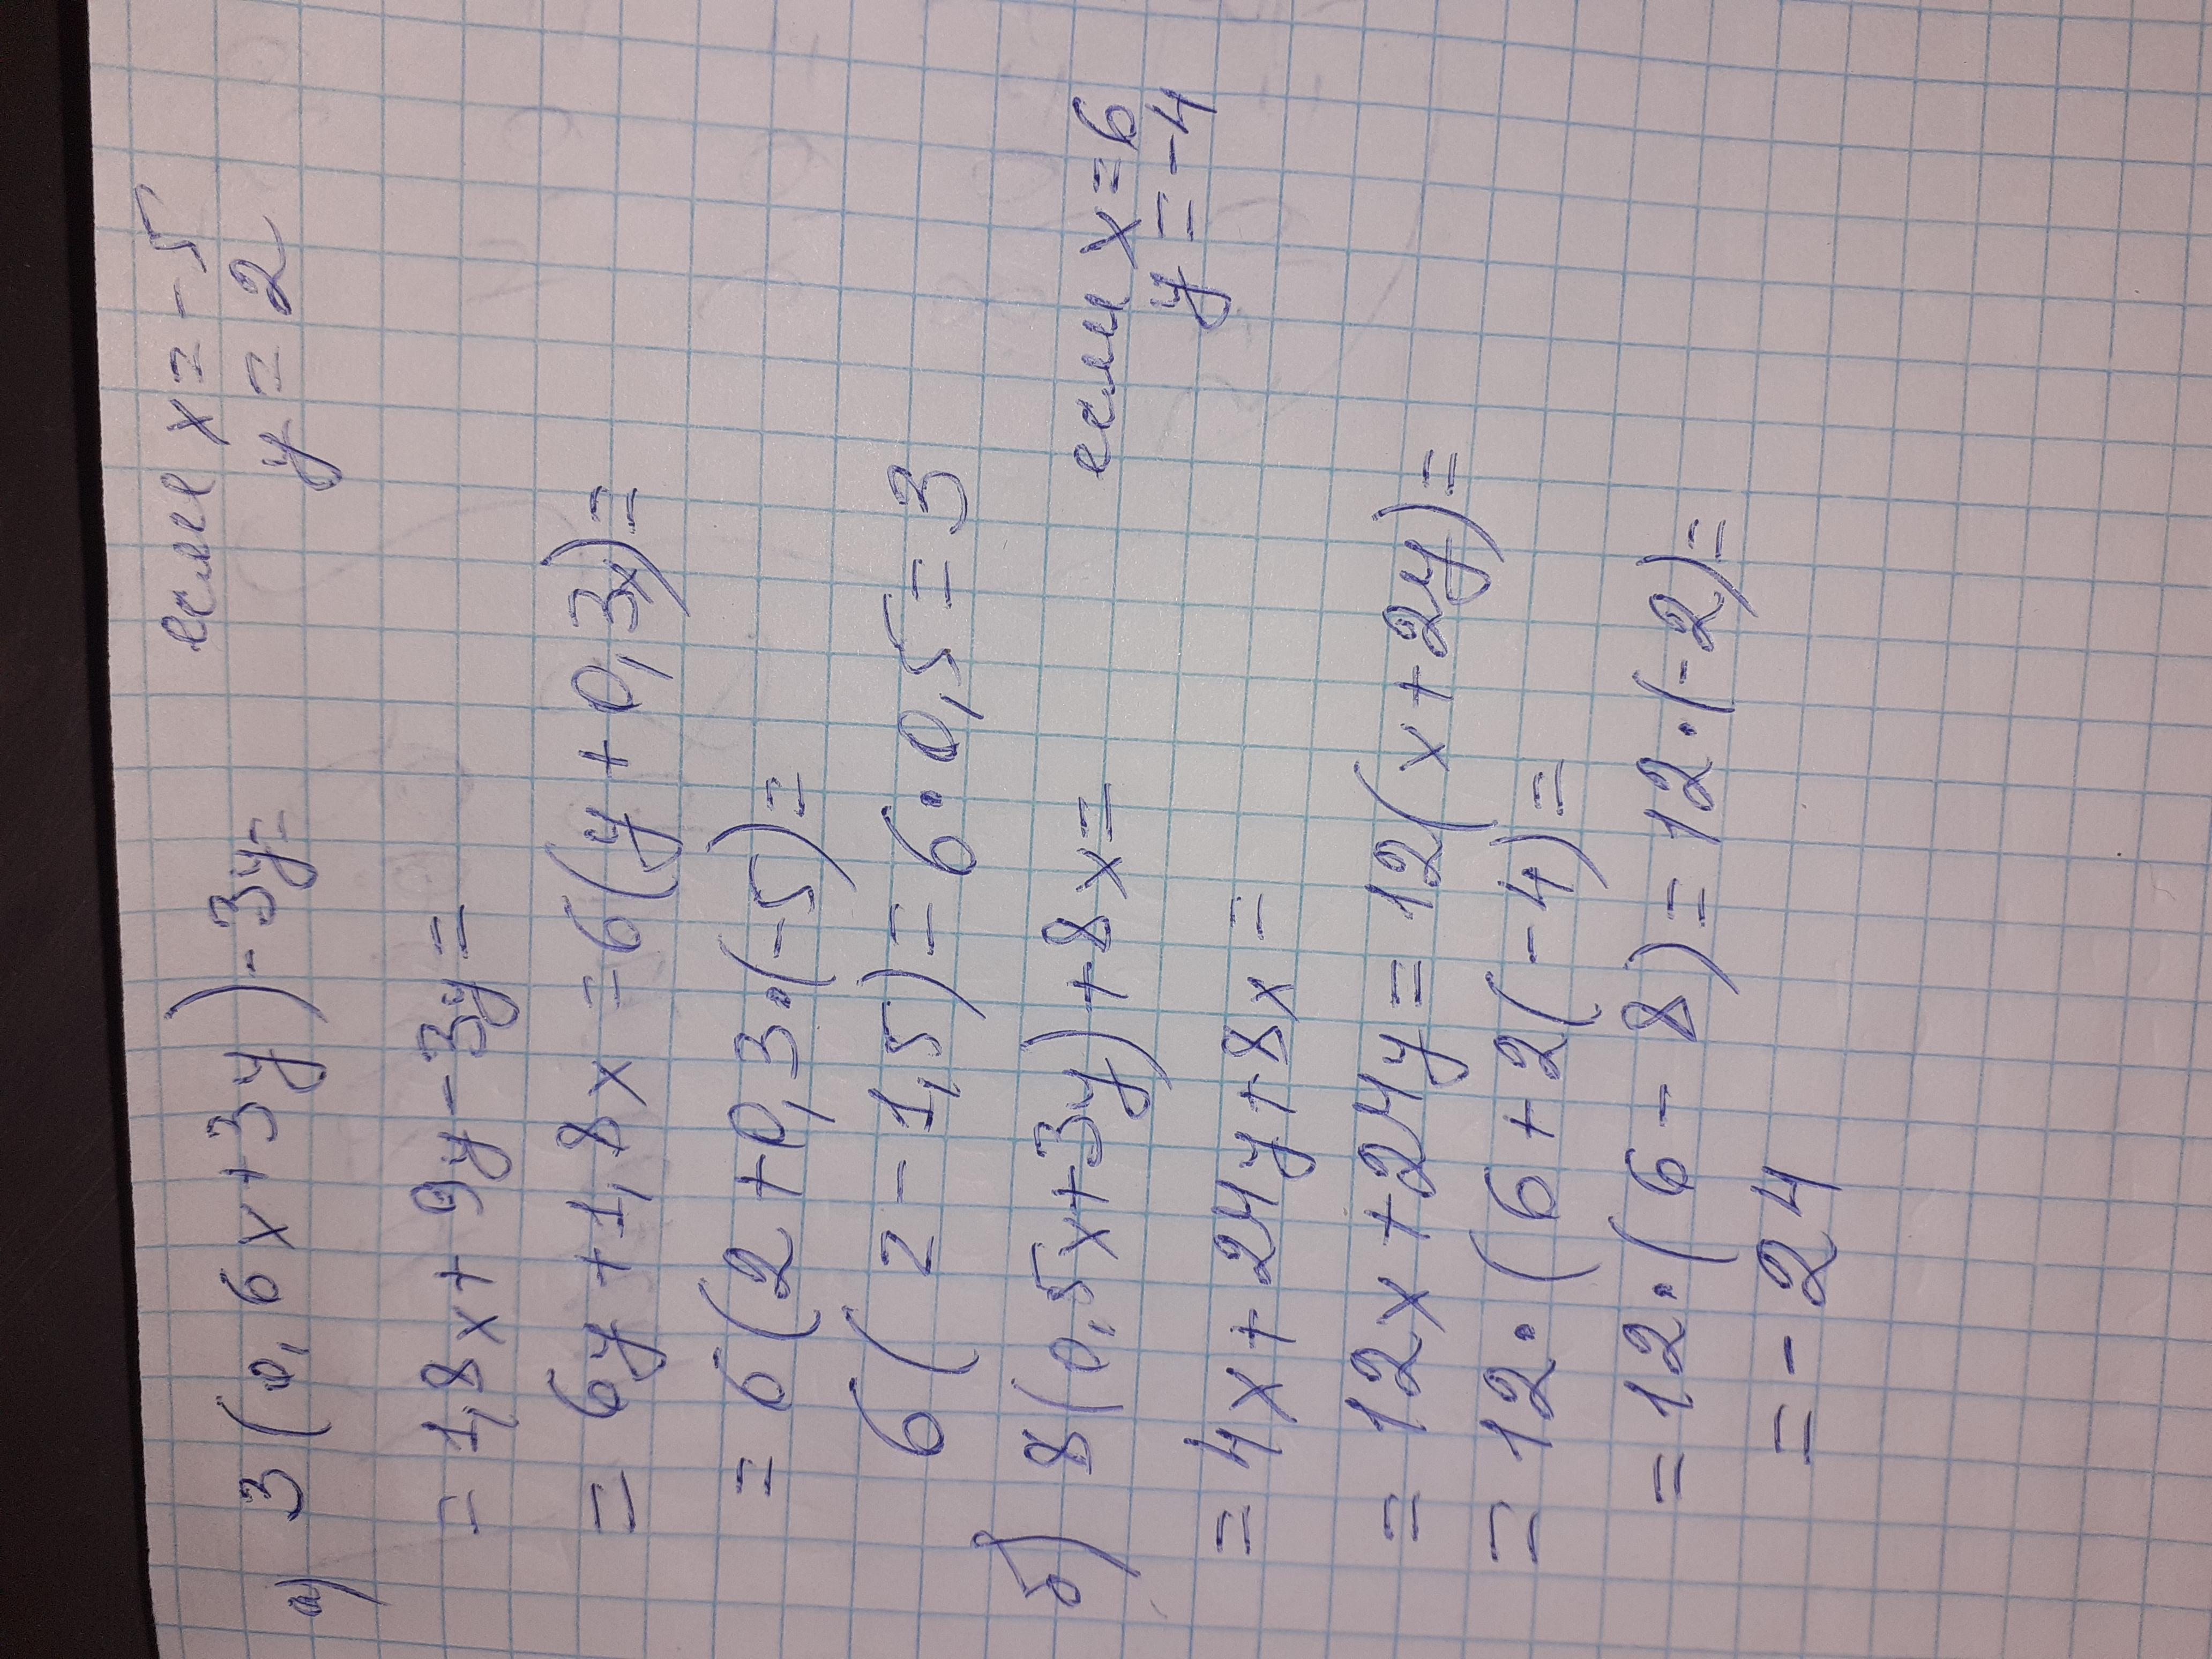 а) 3(0,6x+3y)-3y= если x=-5
y=2
=1,8x+9y-3y=
=6y+1,8x=6(y+0,3x)=
=6(2+0,3·(-5)=
6(2-1,5)=6·0,5=3
б) 8(0,5x+3y)+8x= если x=6
y=-4
=4x+24y+8x=
=12x+24y=12(x+2y)=
=12·(6+2(-4)=
=12·(6-8)=12·(-2)=
=-24